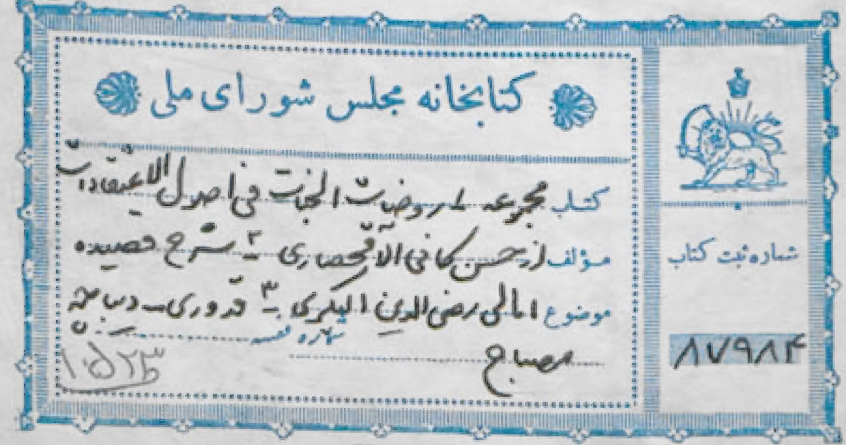 کتابخانه مجلس شورای ملی
کتاب مجموعه ۱ـ روضات الجنات فی اصول الاعتقادات
مؤلف از حسن کافی الآقحصاری ۲ـ شرح قصیده
موضوع امالی رضی الدین البکری ۳ـ قدوری ـ دیباجه
مصباح
شماره قفسه
۱۰۵۲۳
شماره ثبت کتاب
۸۷۹۸۴